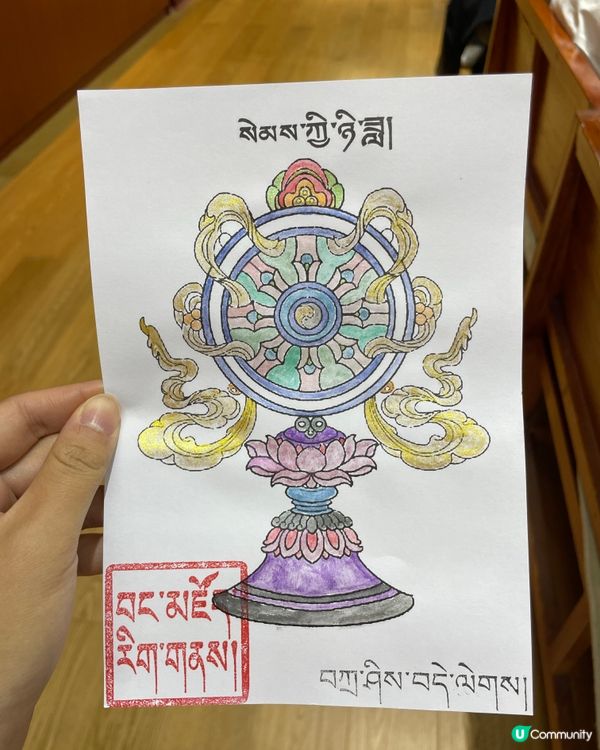 སེམས་ཀྱི་ཉི་ཟླ།
བང་མཛོད་
རིག་གནས།
བཀྲ་ཤིས་བདེ་ལེགས།
U Community